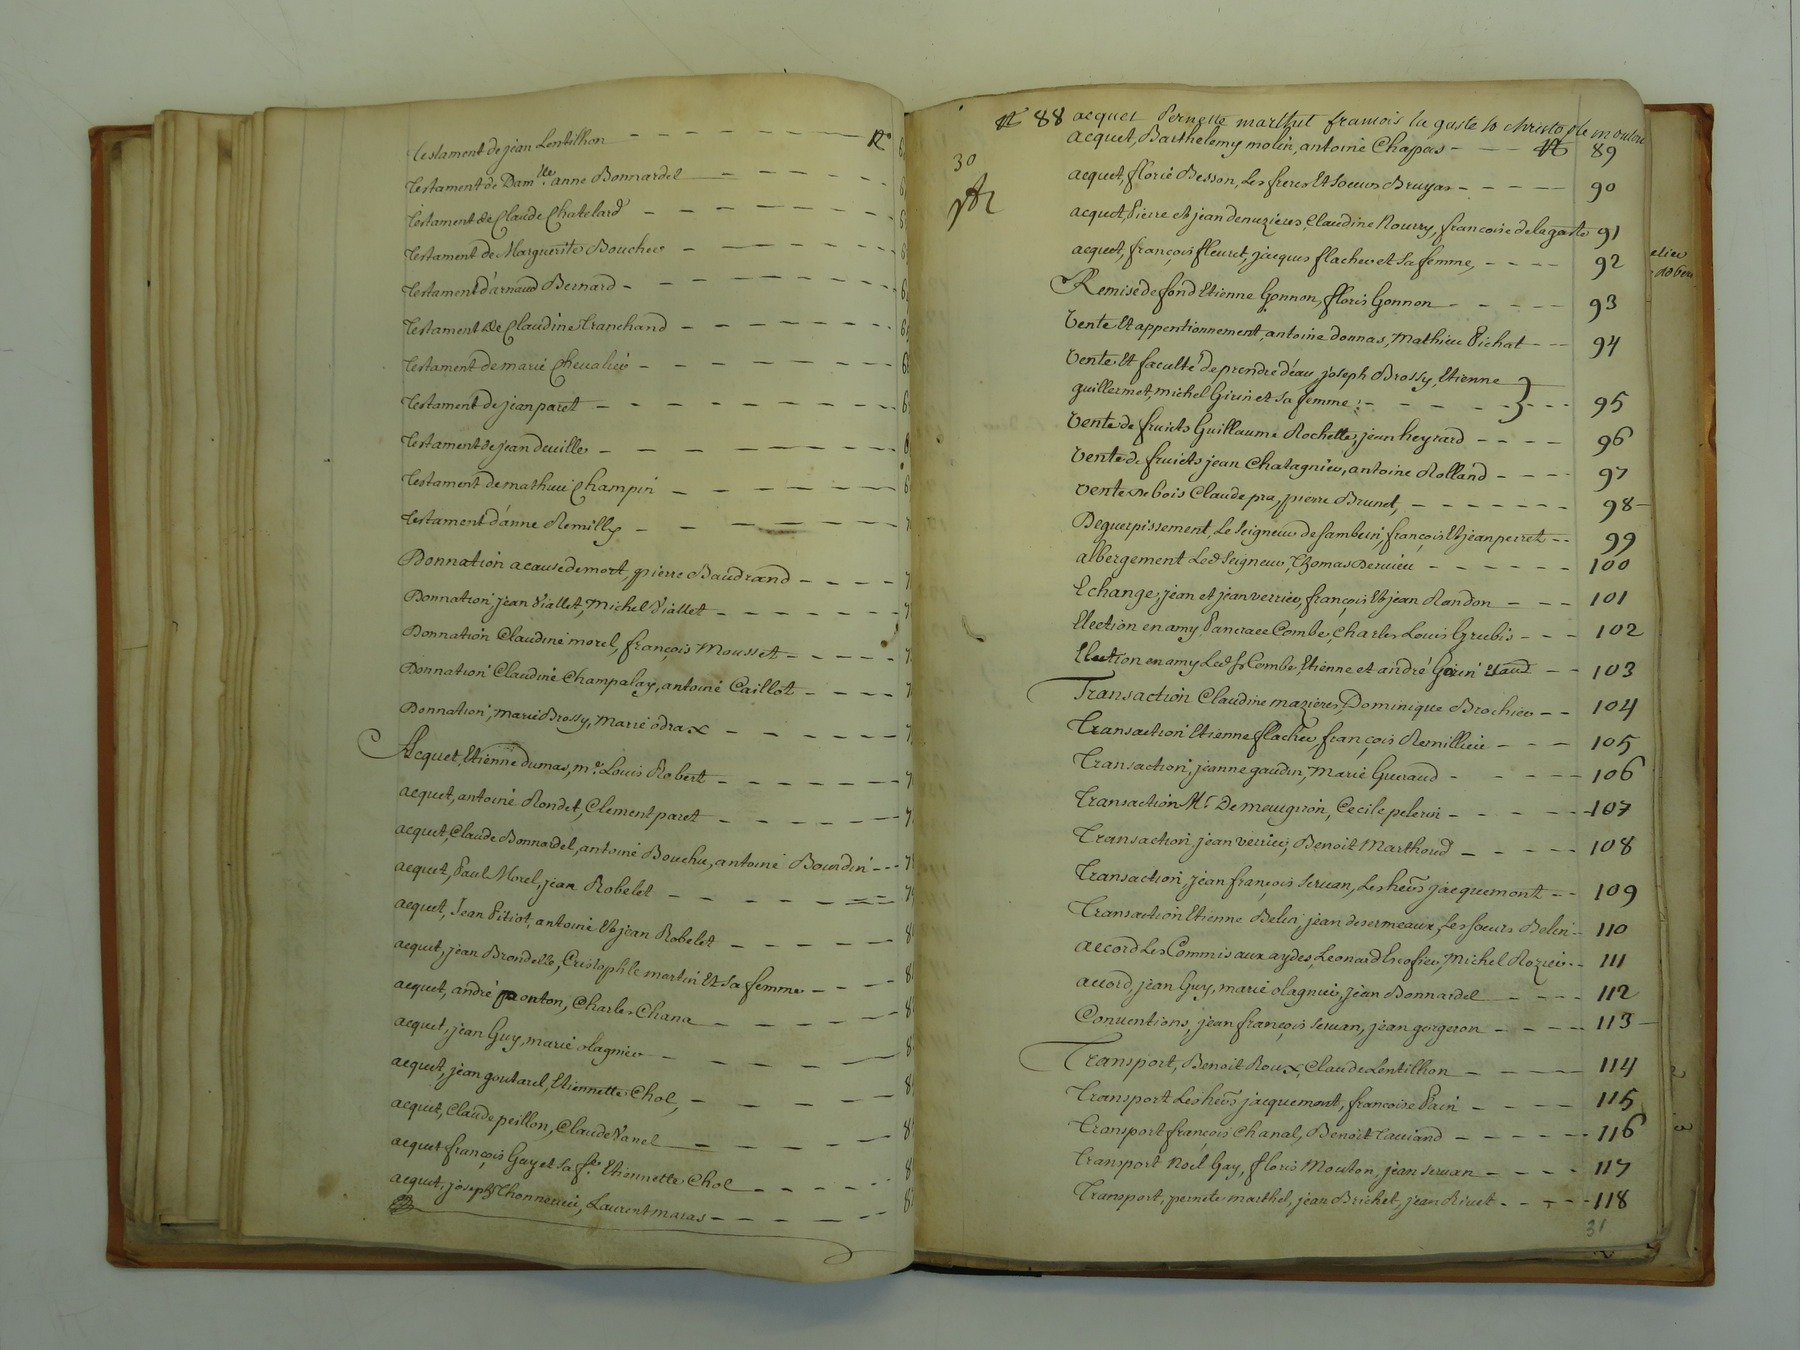 Testament de jean Lentillon
Testament de Dam.lle anne Bonnardel
Testament de Claude Chatelard
Testament de Marguerite Boucher
Testament d'arnaud Bernard
Testament de Claudine tranchand
Testament de marie Chevalier
Testament de jean paret
Testament de jean deville
Testament de mathieu Champin
Testament d'anne Remilly
Donnation a cause de mort, pierre Baudrand
Donnation, jean Viallet, Michel Viallet
Donnation Claudine morel, françois Mousset
Donnation Claudine Champalay, antoine Caillot
Donnation, Marie Brossy, Marie odrax
Acquet, Etienne dumas, m.e Louis Robert
acquet, antoine Rondet, Clement paret
acquet, Claude Bonnardel, antoine Bouchu, antoine Bourdin
acquet, Paul Morel, jean Robelet
acquet, Jean Pitiot, antoine Et jean Robelet
acquet, jean Brondelle, Cristophle martin Et sa femme
acquet, andré monton, Charles Chana
acquet, jean Guy, marie olagnier
acquet, jean goutarel, Etiennette Chol,
acquet, Claude peillon, Claude Vanel
acquet françois Gay et sa fe. Etiennette Chol
acquet, joseph Thonnerieu, Laurent maras
30
88 acquet Pernette marthel francois la gaste to christophle moulin
acquet, Barthelemy molin, antoine Chappas 89
acquet, florie Besson, Les freres Et soeurs Bruyas 90
acquet, Pierre et jean denuzieres, Claudine Nourry, francoise delagaste 91
acquet, françois fleuret, jacques flacher et sa femme, 92
Remise de fond Etienne Gonnon, floris Gonnon 93
Vente Et appentionnement, antoine donnas, Mathieu Pichat 94
Vente Et faculté de prendre d'eau, joseph Brossy, Etienne
guillermet, michel Girin et sa femme 95
Vente de fruicts Guillaume Rochette, jean heyrard 96
Vente de fruicts jean Chatagnier, antoine Rolland 97
Vente de bois Claude pra, pierre Brunet, 98
Deguerpissement, Le Seigneur de Jambein, françois Et jean perret 99
albergement Led. Seigneur, Thomas Dervieu 100
Echange, jean et jean verrier, françois Et jean Rondon 101
Election en amy Pancrace Combe, Charles Louis Grubis 102
Election en amy Led. sr Combe, Etienne et andré Girin 103
Transaction Claudine mazieres, Dominique Brochier 104
Transaction Etienne flacher, françois Remillieu 105
Transaction, jeanne gaudin, Marie Gueraud 106
Transaction Mr. De meaugiron, Cecile pelerin 107
Transaction, jean verrier, Benoit Marthoud 108
Transaction, jean françois servan, Les hers jacquemont 109
Transaction Etienne Belin, jean desermeaux, Les soeurs Belin 110
accord Les Commis aux aydes, Leonard Escofier, Michel Rozier 111
accord, jean Guy, marie olagnier, jean Bonnardel 112
Conventions, jean françois servan, jean gorgeron 113
Transport, Benoit Roux, Claude Lentillion 114
Transport Les hers jacquemont, francoise Pain 115
Transport françois Chanal, Benoit 116
Transport Noel Gay, floris Mouton, jean servan 117
Transport, pernete marthel, jean Brichet, jean Rivet 118
31